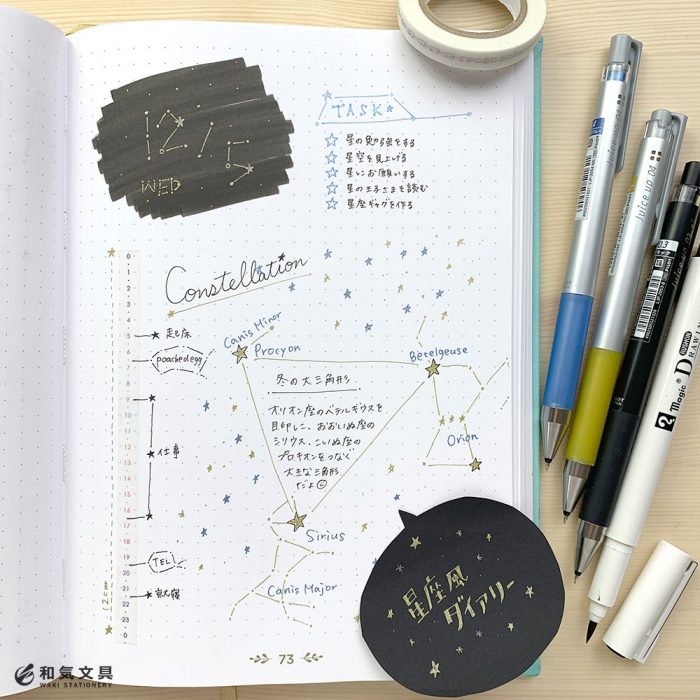 12/5
WED
TASK
星の勉強をする
星空を見上げる
星にお願いする
星の王子さまを読む
星座ギャグを作る
Constellation
0
1
2
3
4
5
6
7
8
9
10
11
12
13
14
15
16
17
18
19
20
21
22
23
0
起床
poached egg
仕事
TEL
就寝
12cm
Canis Minor
Procyon
Betelgeuse
冬の大三角形
オリオン座のベテルギウスを
目印に、おおいぬ座の
シリウス、こいぬ座の
プロキオンをつなぐ
大きな三角形
だよ
Orion
Sirius
Canis Major
73
星座風
ダイアリー
Juice up 04
Magic
和気文具
WAKI STATIONERY